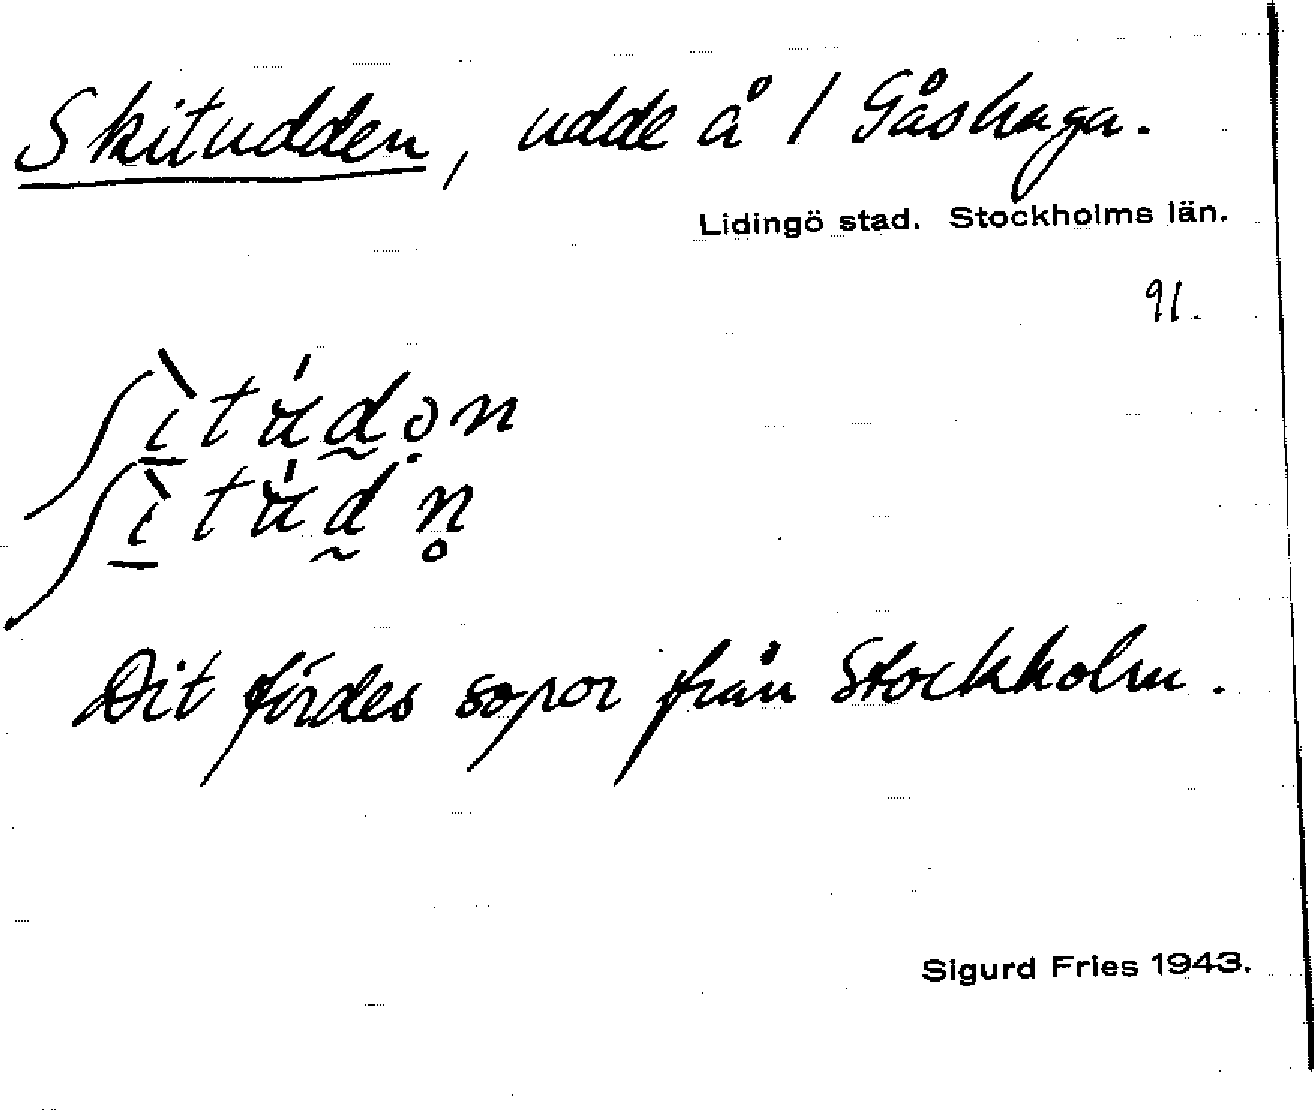 Skitudden, udde å 1 Gåshaga.
Lidingö stad. Stockholms län.
91.
Dit fördes sopor från Stockholm.
Sigurd Fries 1943.